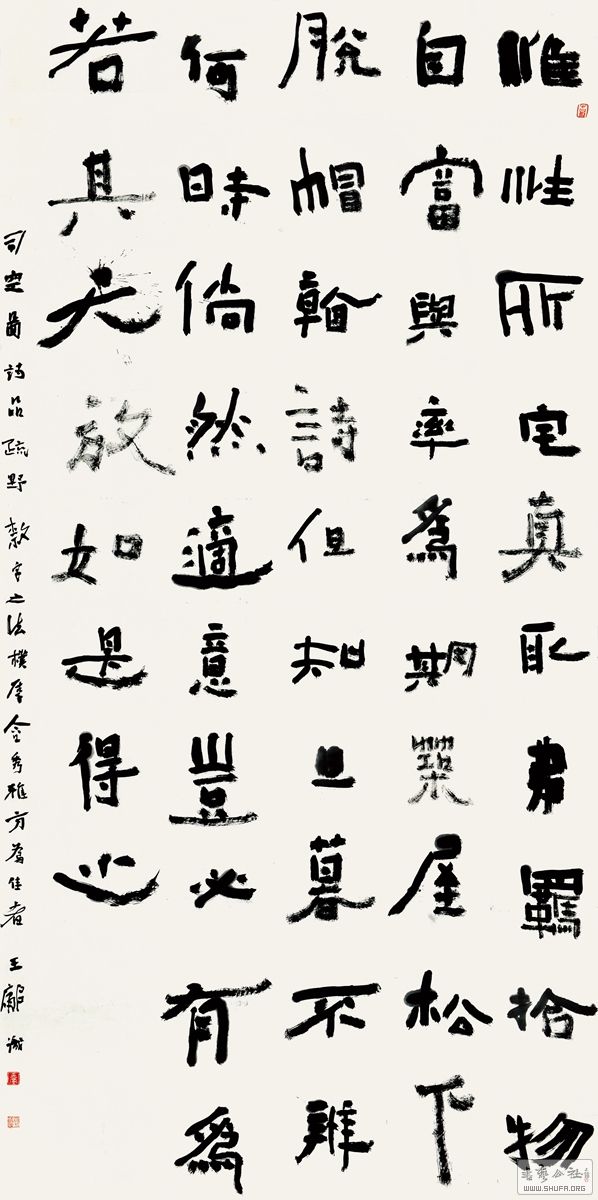 惟性所宅真取弗羈拾物
自富與率爲期築屋松下
脫帽看詩但知旦暮不辨
何時倘然適意豈必有爲
若其天放如是得之
司空圖詩品疏野 字之法樸厚含秀雅方爲佳者 王
书艺公社
WWW.SHUFA.ORG